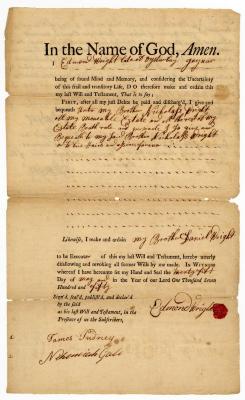 In the Name of God, Amen.
I Edmond Wright
being of sound Mind and Memory, and considering the Uncertainty
of this frail and transitory Life, DO therefore make and ordain this
my last Will and Testament, That is to say;
FIRST, after all my just Debts be paid and discharg'd, I give and
bequeath unto my Brother Nicholas Wright
all my moveable Estate
Estate Both real and personal I Do give and
Bequeath to my said Brother Nicholas Wright
Likewise, I make and ordain my Brother Daniel Wright
to be EXECUTOR of this my last Will and Testament, hereby utterly
disallowing and revoking all former Wills by me made. In WITNESS
whereof I have hereunto set my Hand and Seal the twenty first
Day of may in the Year of our Lord One Thousand Seven
Hundred and fifty
Sign'd, seal'd, publish'd, and declar'd
by the said
as his last Will and Testament, in the
Presence of us the Subscribers,
Edmond Wright
James